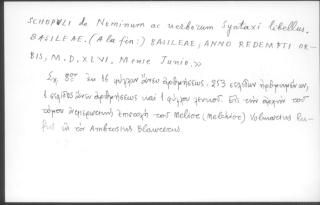 SCHOPULI de Nominum ac uerborum Syntaxi libellus.
BASILEAE. (A la fin:) BASILEAE, ANNO REDEMPTI OR-
BIS, M.D.XLVI. Mense Junio.»
Σχ. 8ον ἐκ 16 φύλλων ἄνευ ἀριθμήσεως. 253 σελίδων ἠριθμημένων,
1 σελίδος ἄνευ ἀριθμήσεως καὶ 1 φύλλου λευκοῦ. Εἰς τὴν ἀρχὴν τοῦ
τόμου χειρόγραφος ἐπιστολὴ τοῦ Melior (Melchior) Volmarius Ru-
fus in τὸ Ambrosius Blaurerus.